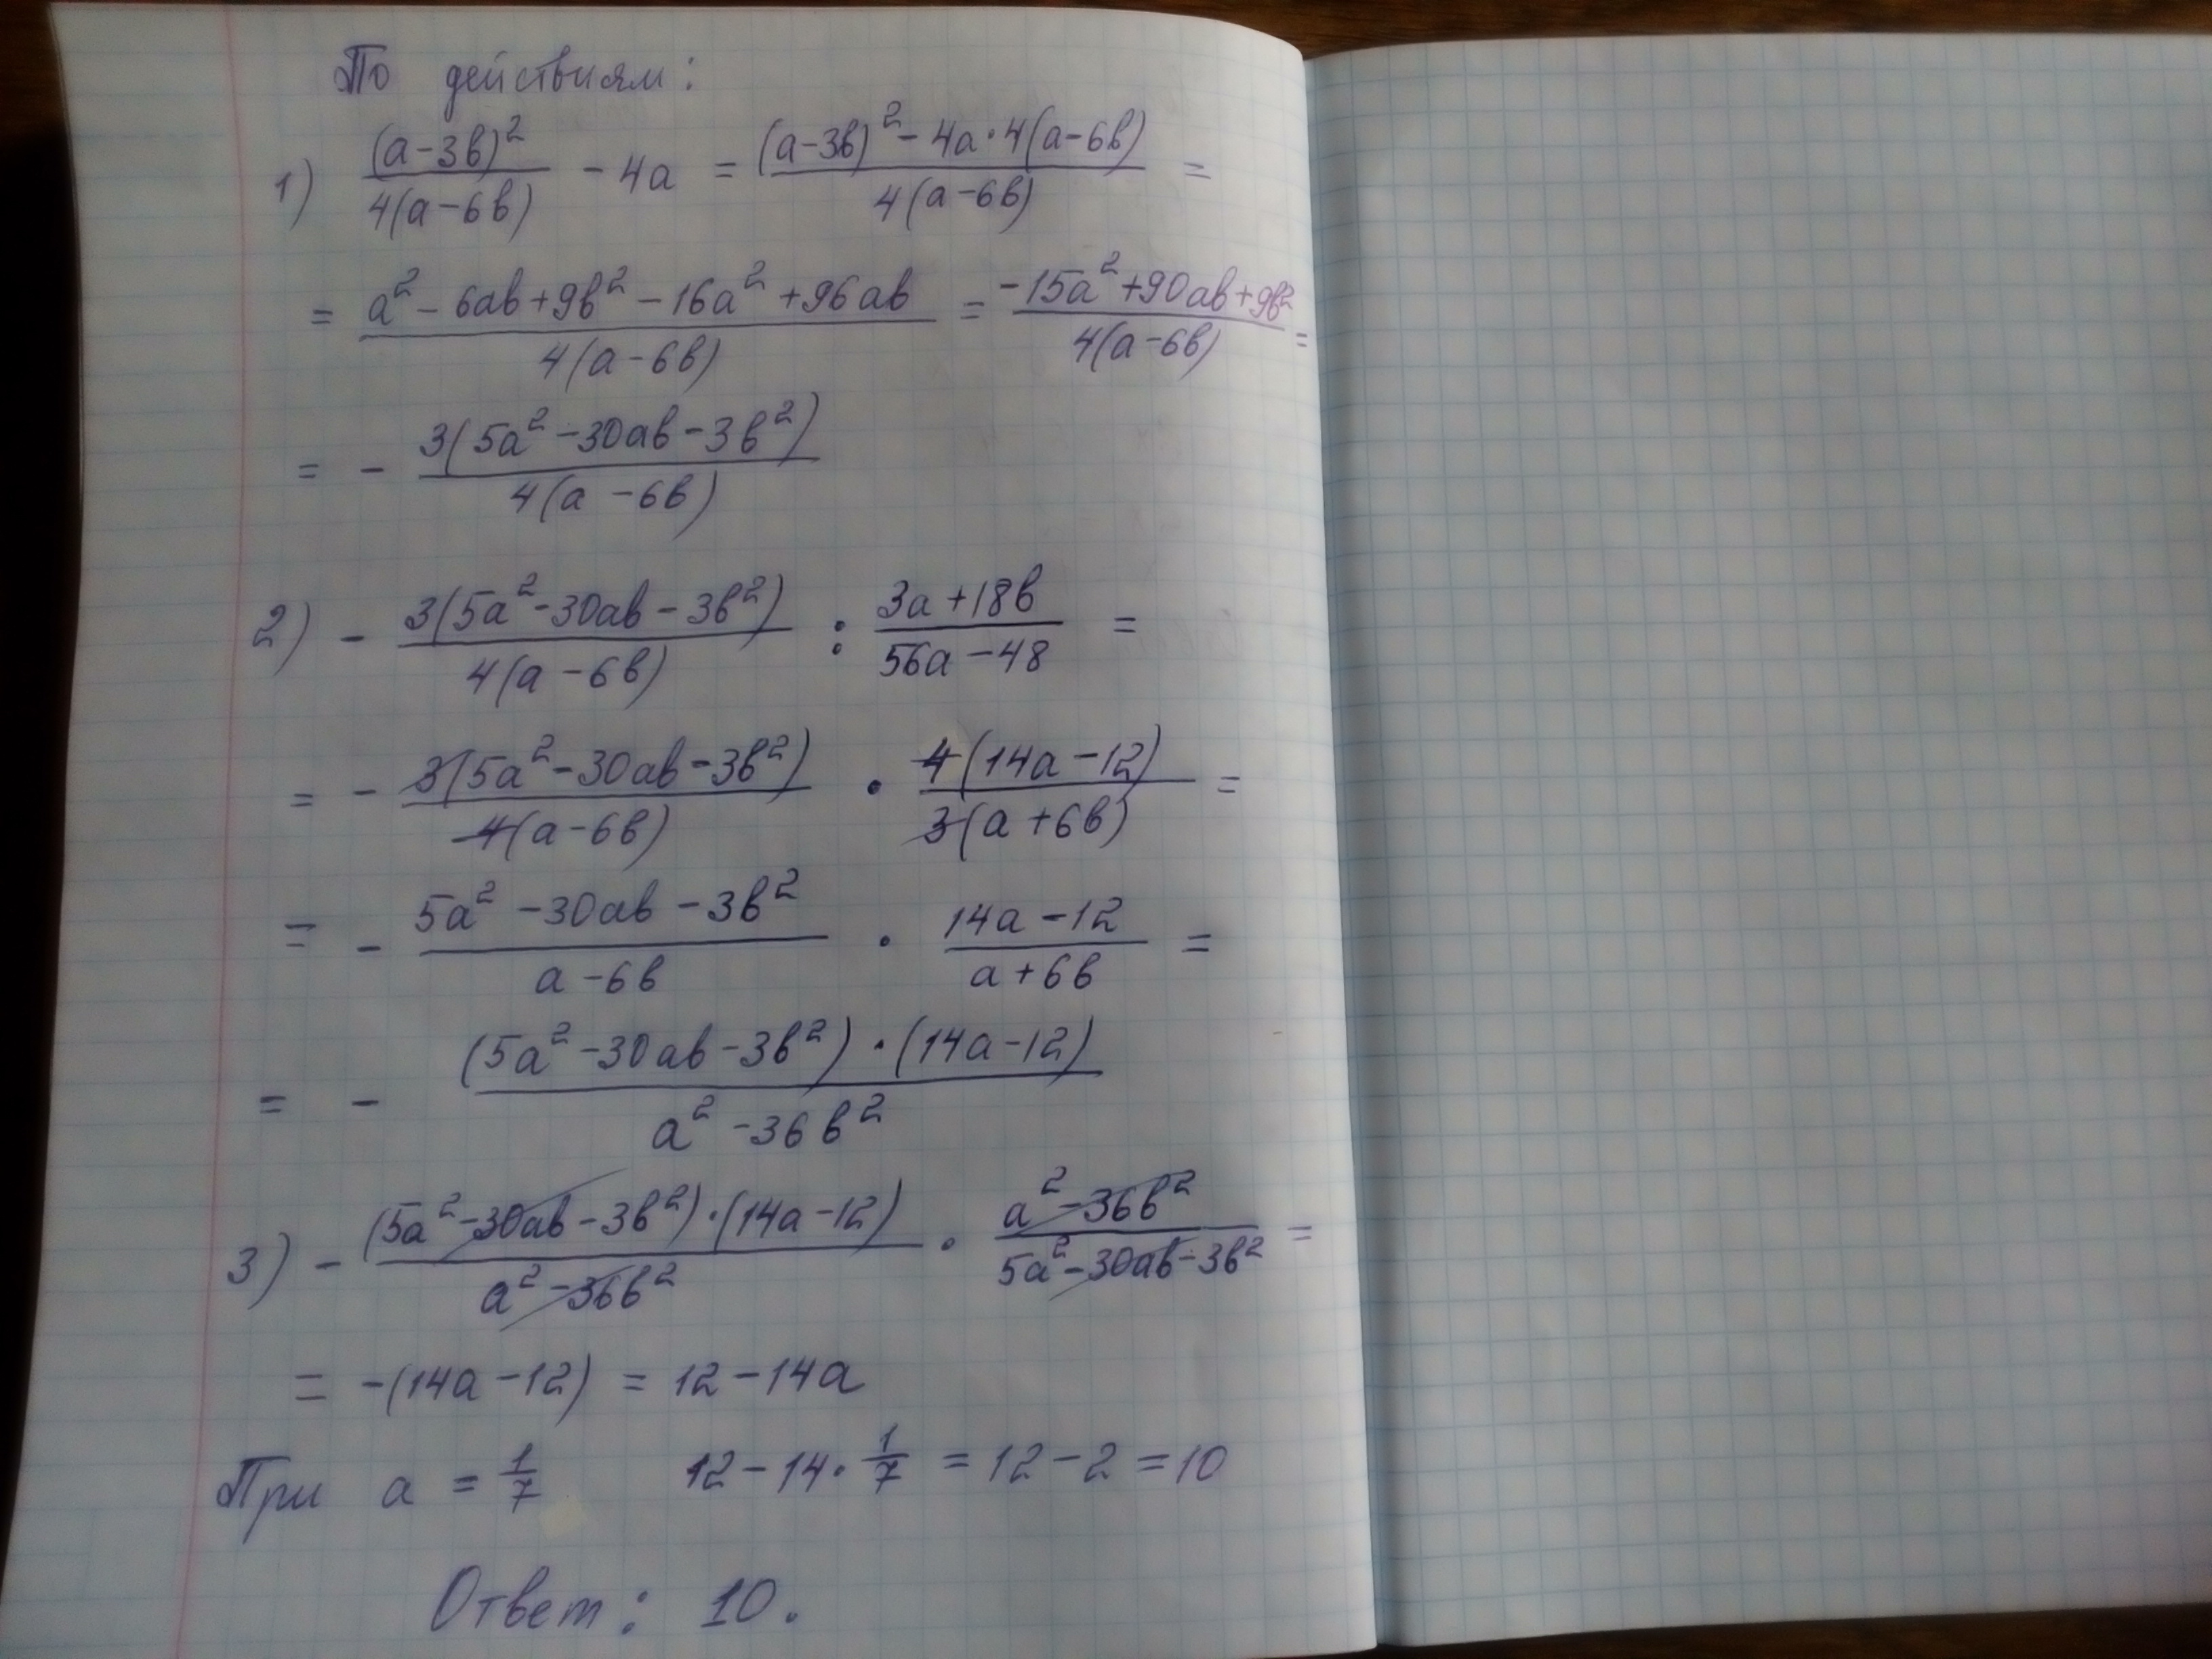 По действиям:
1) (а-3в)²/4(а-6в) - 4а = (а-3в)²-4а·4(а-6в)/4(а-6в) =
= а²-6ав+9в²-16а²+96ав/4(а-6в) = -15а²+90ав+9в²/4(а-6в) =
= - 3(5а²-30ав-3в²)/4(а-6в)
2) - 3(5а²-30ав-3в²)/4(а-6в) : 3а+18в/56а-48 =
= - 3(5а²-30ав-3в²)/4(а-6в) · 4(14а-12)/3(а+6в) =
= - 5а²-30ав-3в²/а-6в · 14а-12/а+6в =
= - (5а²-30ав-3в²)·(14а-12)/а²-36в²
3) - (5а²-30ав-3в²)·(14а-12)/а²-36в² · а²-36в²/5а²-30ав-3в² =
= -(14а-12) = 12-14а
При а = 1/7 12-14·1/7 = 12-2 = 10
Ответ: 10.